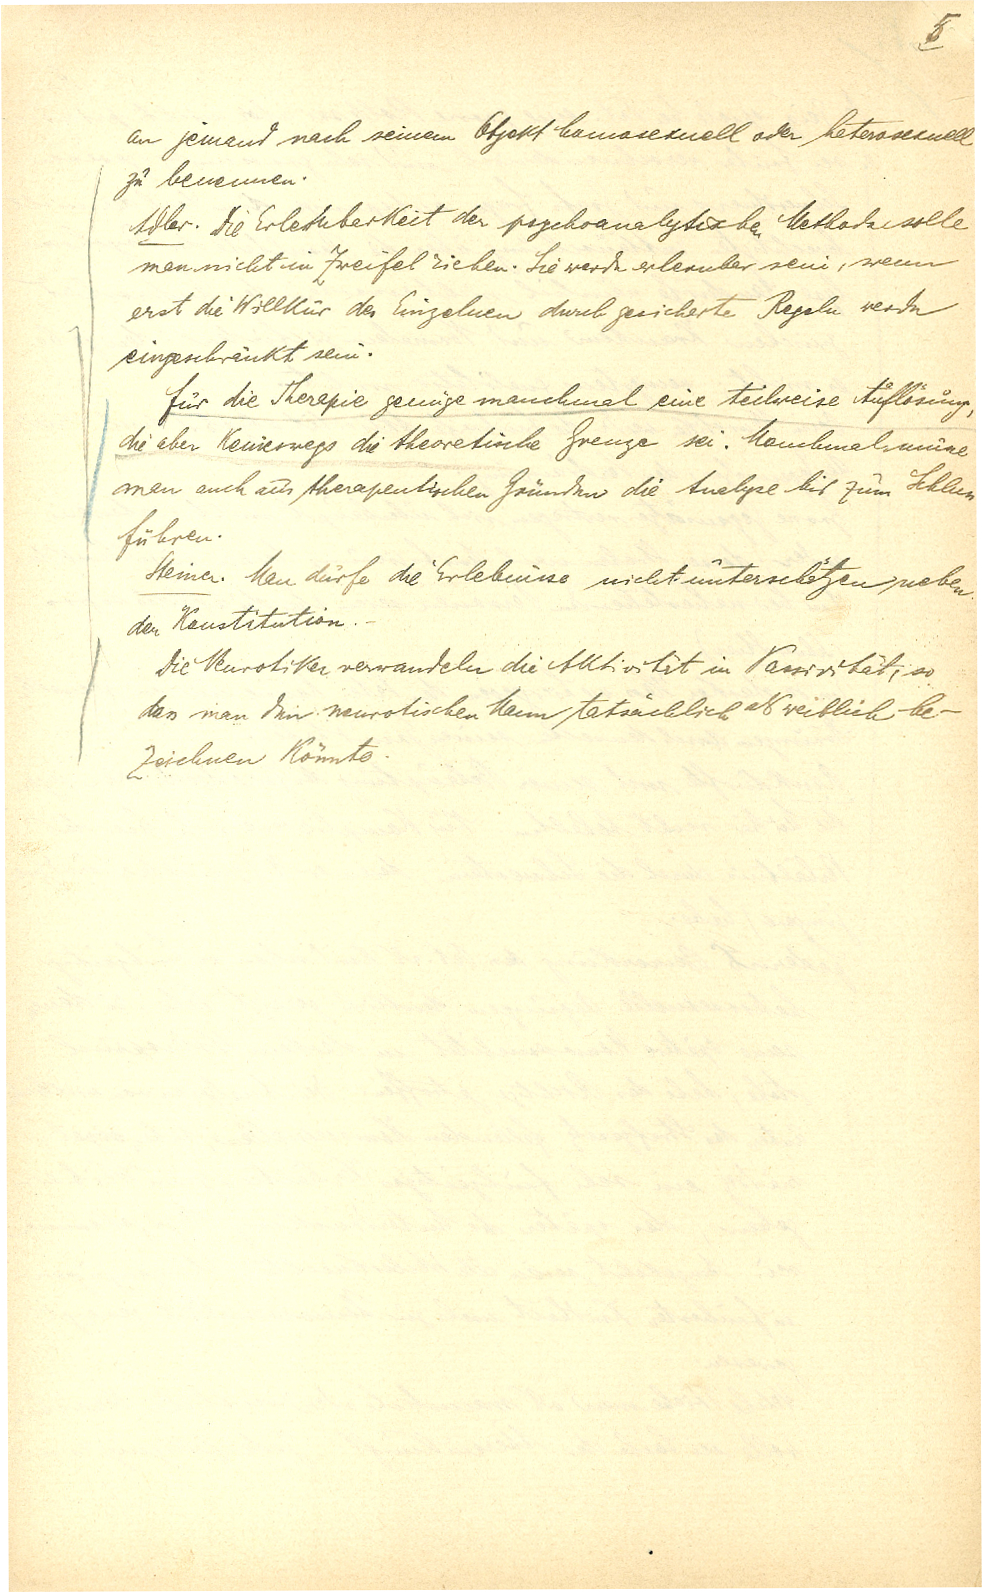 5
an jemand nach seinem Objekt homosexuell oder heterosexuell
zu benennen.
Adler. Die Erlernbarkeit der psychoanalytischen Methode solle
man nicht in Zweifel ziehen. Sie werde erlernbar sein, wenn
erst die Willkür des Einzelnen durch gesicherte Regeln werde
eingeschränkt sein.
Für die Therapie genüge manchmal eine teilweise Auflösung,
die aber keineswegs die theoretische Grenze sei. Manchmal müsse
man auch aus therapeutischen Gründen die Analyse bis zum Schluss
führen.
Steiner. Man dürfe die Erlebnisse nicht unterschätzen neben
der Konstitution. –
Die Neurotiker verwandeln die Aktivität in Passivität, so
dass man den neurotischen Mann tatsächlich als weiblich be-
zeichnen könnte.